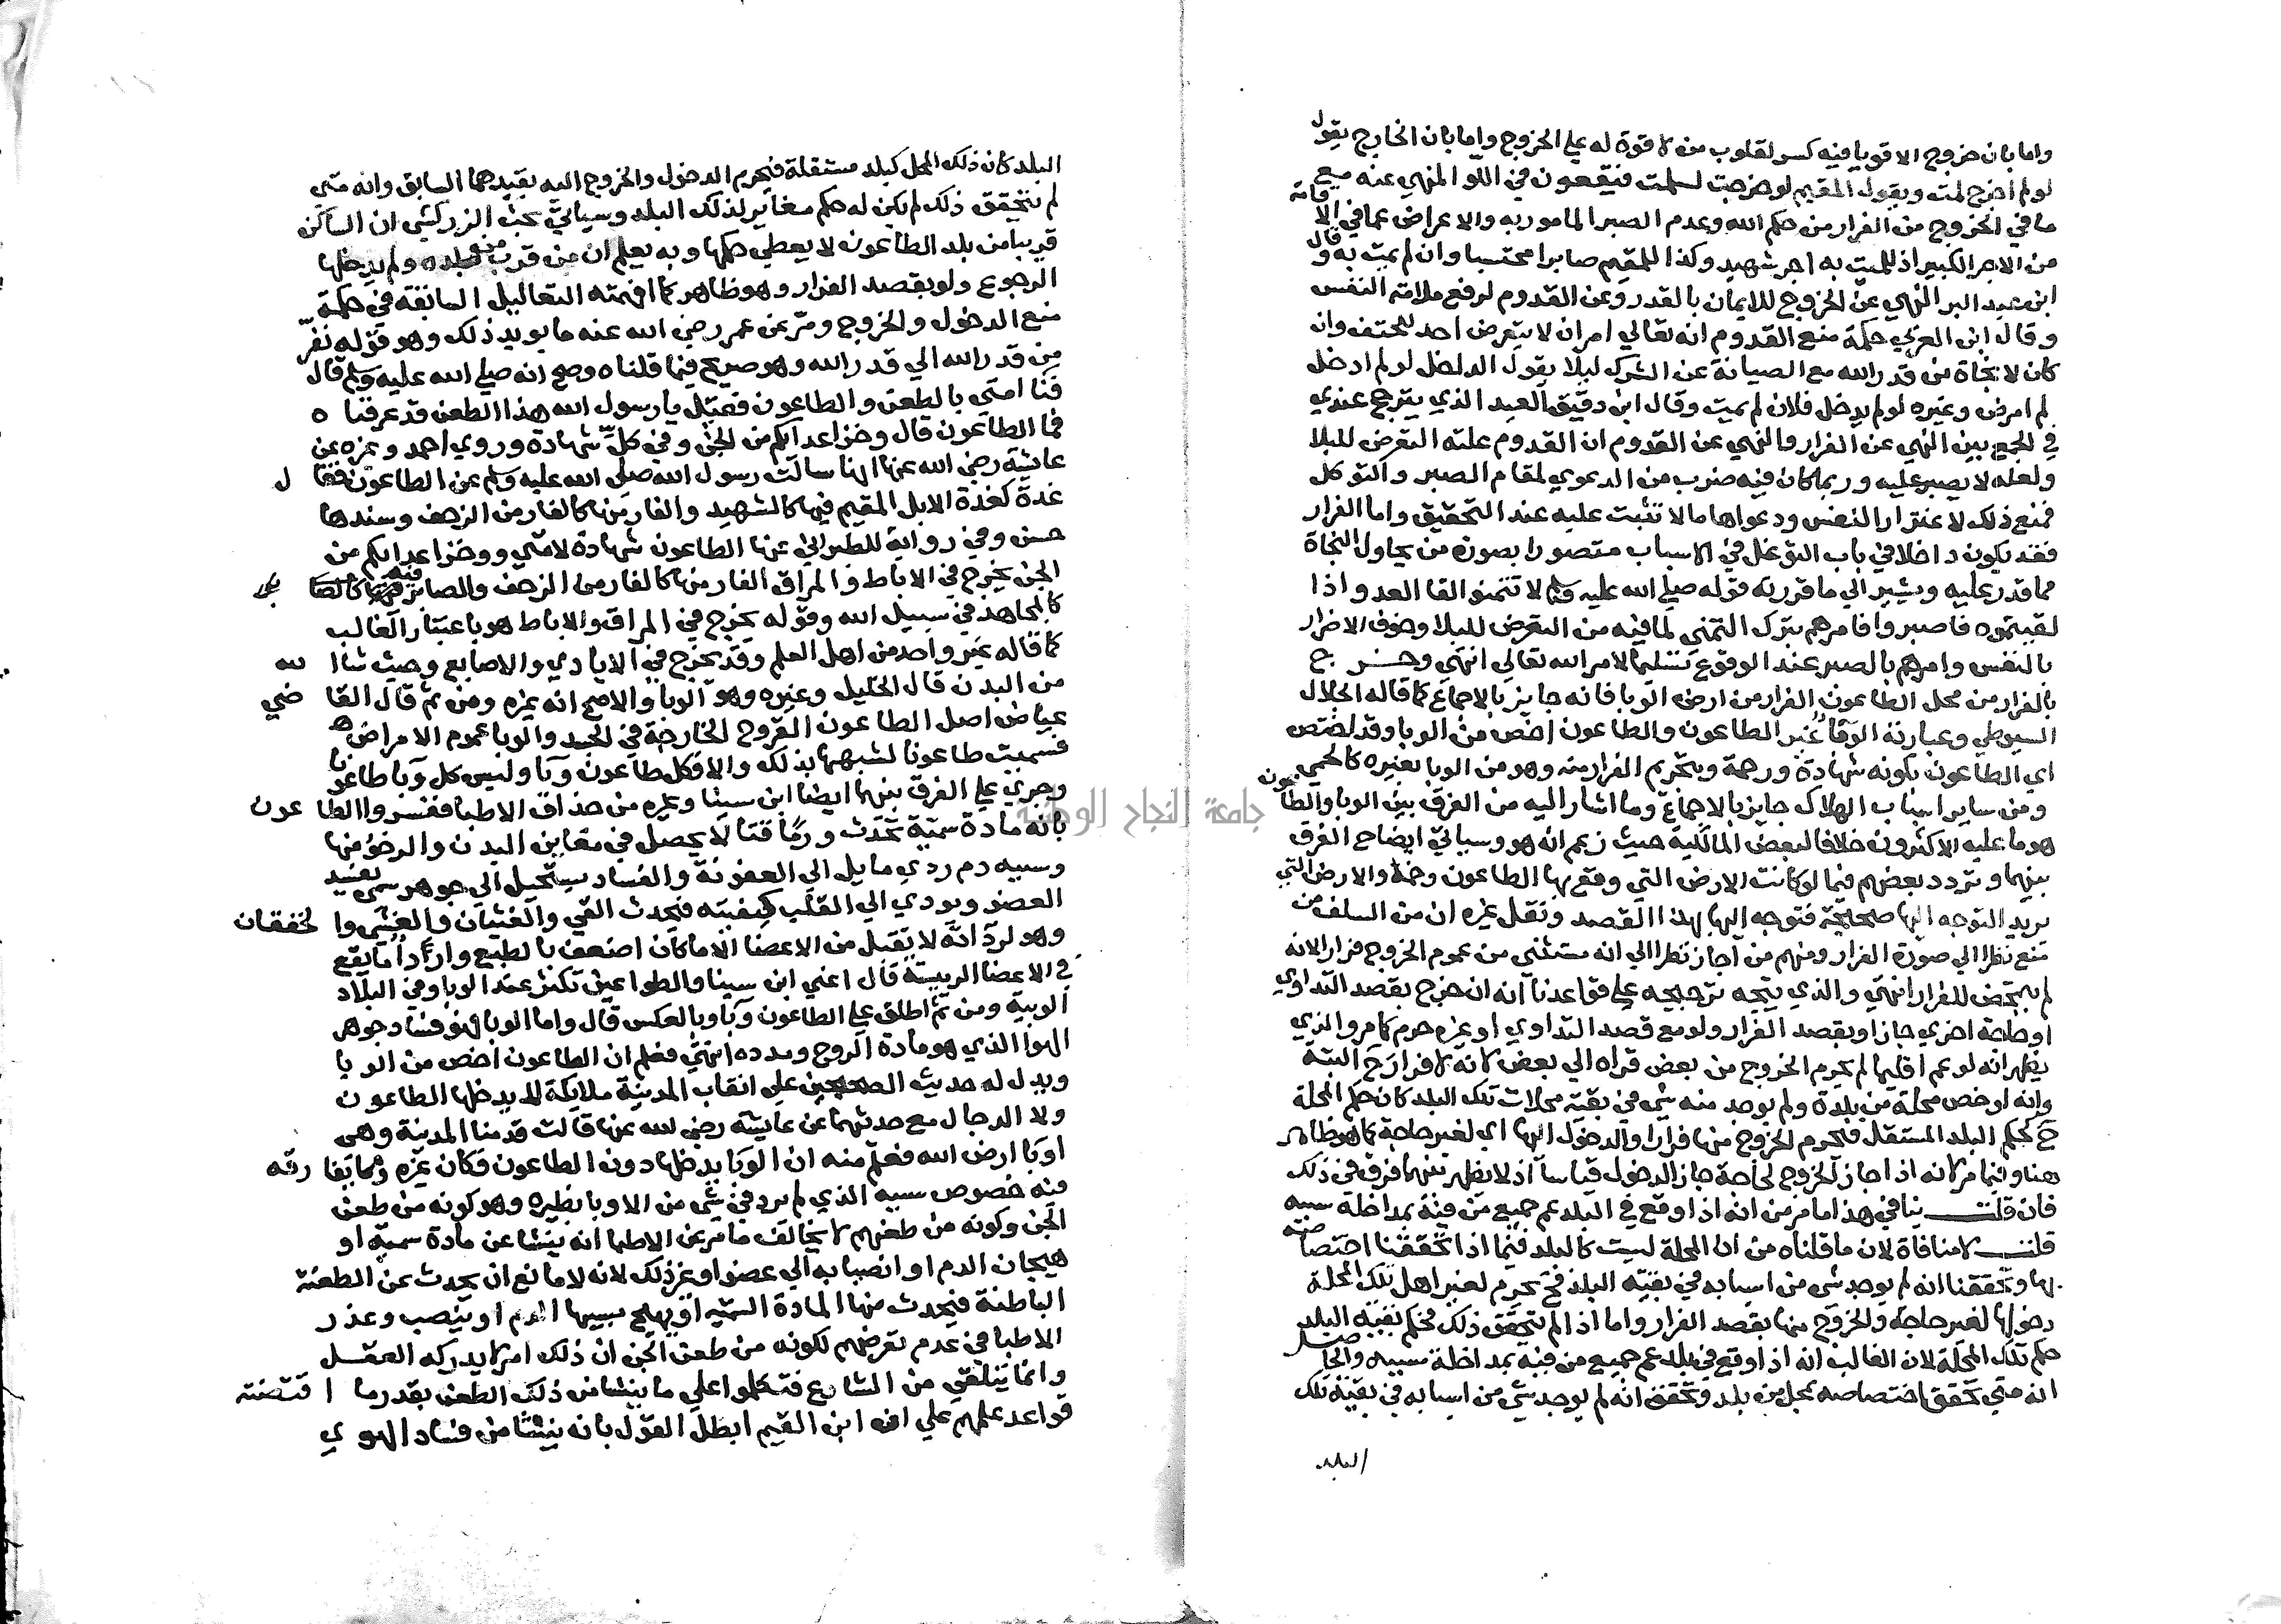 واما بان خروج الاقويا فيه كسر لقلوب من لا قوة له علي الخروج واما بان الخارج يقول
لو لم اخرج لمت ويقول المقيم لو خرجت لسلمت فيقعون في اللو المنهي عنه مع
ما في الخروج من الفرار من حكم الله وعدم الصبر المامور به والاعراض عما في الاقامة
من الاجر الكبير اذ للميت به اجر شهيد وكذا للمقيم صابرا محتسبا وان لم يمت به وقال
ابن عبد البر النهي عن الخروج للايمان بالقدر وعن القدوم لرفع ملامة النفس
وقال ابن العربي حكمة منع القدوم انه تعالي امر ان لا يتعرض احد للحتف وان
كان لا نجاة من قدر الله مع الصيانة عن الشرك ليلا يقول الداخل لو لم ادخل
لم امرض وغيره لو لم يدخل فلان لم يمت وقال ابن دقيق العيد الذي يترجح عندي
في الجمع بين النهي عن الفرار والنهي عن القدوم ان القدوم علته التعرض للبلا
ولعله لا يصبر عليه وربما كان فيه ضرب من الدعوي لمقام الصبر والتوكل
فمنع ذلك لاغترار النفس ودعواها ما لا تثبت عليه عند التحقيق واما الفرار
فقد يكون داخلا في باب التوغل في الاسباب متصورا بصورة من يحاول النجاة
مما قدر عليه ويشير الي ما قررته قوله صلي الله عليه وسلم لا تتمنوا لقا العدو واذا
لقيتموه فاصبروا فامرهم بترك التمني لما فيه من التعرض للبلا وخوف الاضرار
بالنفس وامرهم بالصبر عند الوقوع تسليما لامر الله تعالي انتهي وخرج
بالفرار من محل الطاعون الفرار من ارض الوبا فانه جايز بالاجماع كما قاله الجلال
السيوطي وعبارته الوبا غير الطاعون والطاعون اخص من الوبا وقد اختص
اي الطاعون بكونه شهادة ورحمة وبتحريم الفرار منه وهو من الوبا بغيره كالحمي
ومن ساير اسباب الهلاك جايز بالاجماع وما اشار اليه من الفرق بين الوبا والطاعون
هو ما عليه الاكثرون خلافا لبعض المالكية حيث زعم انه هو وسياتي ايضاح الفرق
بينهما وتردد بعضهم فيما لو كانت الارض التي وقع بها الطاعون وخمة والارض التي
يريد التوجه اليها صحيحة فتوجه اليها بهذا القصد ونقل غيره ان من السلف من
منع نظرا الي صورة الفرار ومنهم من اجاز نظرا الي انه مستثني من عموم الخروج فرارا لانه
لم يتمحض للفرار انتهي والذي يتجه ترجيحه علي قواعدنا انه ان خرج بقصد التداوي
او حاجة اخري جاز او بقصد الفرار ولو مع قصد التداوي او غيره حرم كما مر والذي
يظهر انه لو عم اقليما لم يحرم الخروج من بعض قراه الي بعض لانه لا فرار ح البتة
وانه لو خص محلة من بلدة ولم يوجد منه شي في بقية محلات تلك البلد كان حكم المحلة
ح كحكم البلد المستقل فيحرم الخروج منها فرارا والدخول اليها اي لغير حاجة كما هو ظاهر
هنا وفيما مر لانه اذا جاز الخروج لحاجة جاز الدخول قياسا اذ لا يظهر بينهما فرق في ذلك
فان قلت ينافي هذا ما مر من انه اذا وقع في البلد عم جميع من فيه بمداخلة سببه
قلت لا منافاة لان ما قلناه من ان المحلة ليست كالبلد فيما اذا تحققنا اختصاصه
بها وتحققنا انه لم يوجد شي من اسبابه في بقية البلد فح يحرم لغير اهل تلك المحلة
دخولها لغير حاجة والخروج منها بقصد الفرار واما اذا لم يتحقق ذلك فحكم بقية البلد
حكم تلك المحلة لان الغالب انه اذا وقع في بلد عم جميع من فيه بمداخلة سببه والحاصل
انه متي تحقق اختصاصه بمحل من بلد وتحقق انه لم يوجد شي من اسبابه في بقية تلك
البلد
البلد كان ذلك المحل كبلد مستقلة فيحرم الدخول والخروج اليه بقيدهما السابق وانه متي
لم يتحقق ذلك لم يكن له حكم مغاير لذلك البلد وسياتي بحث الزركشي ان الساكن
قريبا من بلد الطاعون لا يعطي حكمها وبه يعلم ان من قرب من بلده ولم يدخلها
الرجوع ولو بقصد الفرار وهو ظاهر كما افهمته التعاليل السابقة في حكمة
منع الدخول والخروج ومر عن عمر رضي الله عنه ما يويد ذلك وهو قوله نفر
من قدر الله الي قدر الله وهو صريح فيما قلناه وصح انه صلي الله عليه وسلم قال
فنا امتي بالطعن والطاعون فقيل يا رسول الله هذا الطعن قد عرفناه
فما الطاعون قال وخز اعدايكم من الجن وفي كل شهادة وروي احمد وغيره عن
عايشة رضي الله عنها انها سالت رسول الله صلي الله عليه وسلم عن الطاعون فقال
غدة كغدة الابل المقيم فيها كالشهيد والفار منها كالفار من الزحف وسندها
حسن وفي رواية للطبراني عنها الطاعون شهادة لامتي ووخز اعدايكم من
الجن يخرج في الاباط والمراق الفار منها كالفار من الزحف والصابر فيه
كالمجاهد في سبيل الله وقوله يخرج في المراق والاباط هو باعتبار الغالب
كما قاله غير واحد من اهل العلم وقد يخرج في الايادي والاصابع وحيث شا الله
من البدن قال الخليل وغيره وهو الوبا والاصح انه غيره ومن ثم قال القاضي
عياض اصل الطاعون القروح الخارجة في الجسد والوبا عموم الامراض
فسميت طاعونا لشبهها بذلك والا فكل طاعون وبا وليس كل وبا طاعونا
وجري علي الفرق بينهما ايضا ابن سينا وغيره من حذاق الاطبا ففسروا الطاعون
بانه مادة سمية تحدث ورما قتالا يحصل في مغابن البدن والرخو منها
وسببه دم ردي مايل الي العفونة والفساد يستحيل الي جوهر سمي يفسد
العضو ويودي الي القلب كيفيته فيحدث القي والغثيان والغشي والخفقان
وهو لرداته لا يقبل من الاعضا الا ما كان اضعف بالطبع واردا ما يقع
في الاعضا الرييسة قال اعني ابن سينا والطواعين تكثر عند الوبا وفي البلاد
الوبية ومن ثم اطلق علي الطاعون وبا وبالعكس قال واما الوبا فهو فساد جوهر
الهوا الذي هو مادة الروح ومدده انتهي فعلم ان الطاعون اخص من الوبا
ويدل له حديث الصحيحين علي انقاب المدينة ملايكة لا يدخلها الطاعون
ولا الدجال مع حديثهما عن عايشة رضي الله عنها قالت قدمنا المدينة وهي
اوبا ارض الله فعلم منه ان الوبا يدخلها دون الطاعون فكان غيره ومما يفارقه
فيه خصوص سببه الذي لم يرد في شي من الاوبا نظيره وهو كونه من طعن
الجن وكونه من طعنهم لا يخالف ما مر عن الاطبا انه ينشا عن مادة سمية او
هيجان الدم او انصبابه الي عضو او غير ذلك لانه لا مانع ان يحدث عن الطعنة
الباطنة فيحدث منها المادة السمية او يهيج بسببها الدم او ينصب وعذر
الاطبا في عدم تعرضهم لكونه من طعن الجن ان ذلك امر لا يدركه العقل
وانما يتلقي من الشارع فتكلموا علي ما ينشا من ذلك الطعن بقدر ما اقتضته
قواعد علمهم علي ان ابن القيم ابطل القول بانه ينشا من فساد الهوي
جامعة النجاح الوطنية